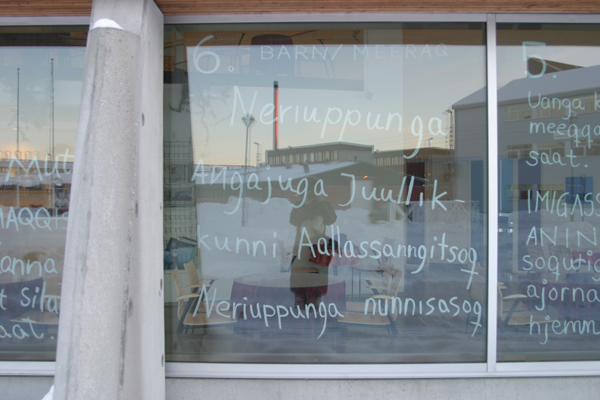 Mut
MAQQI
anna
t sila
aat.
6. BARN/MEERAQ
Neriuppunga
Angajuga Juullik-
kunni Aallassanngitsoq
Neriuppunga nunnisasoq
5.
Uanga k
meeqqa
saat.
IMIGASS
ANIN
soqutig
ajorna
hjemm